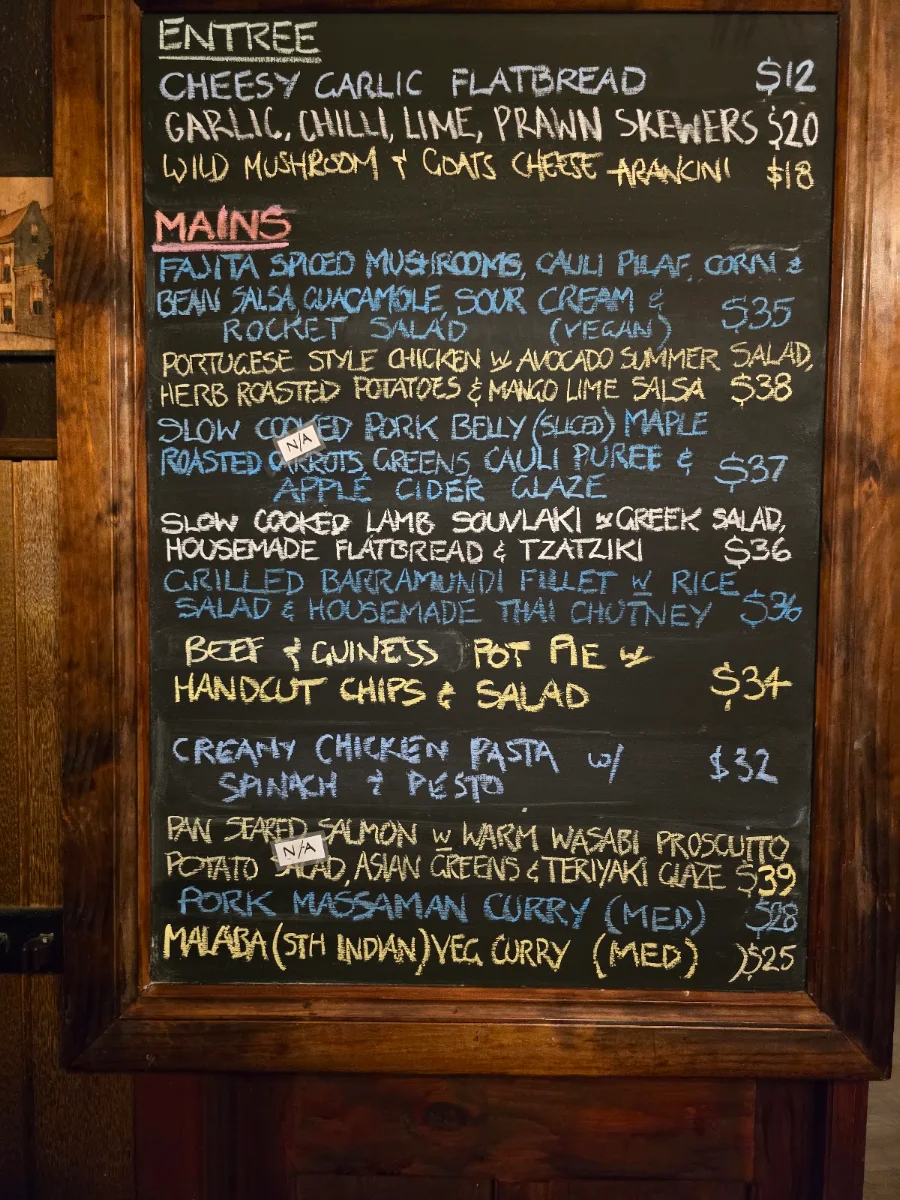 ENTREE
CHEESY GARLIC FLATBREAD $12
GARLIC, CHILLI, LIME, PRAWN SKEWERS $20
WILD MUSHROOM & GOATS CHEESE ARANCINI $18
MAINS
FAJITA SPICED MUSHROOMS, CAULI PILAF, CORN &
BEAN SALSA, GUACAMOLE, SOUR CREAM &
ROCKET SALAD (VEGAN) $35
PORTUGESE STYLE CHICKEN w AVOCADO SUMMER SALAD,
HERB ROASTED POTATOES & MANGO LIME SALSA $38
SLOW COOKED PORK BELLY (SLICED) MAPLE
N/A
ROASTED CARROTS, GREENS, CAULI PUREE & $37
APPLE CIDER GLAZE
SLOW COOKED LAMB SOUVLAKI w GREEK SALAD,
HOUSEMADE FLATBREAD & TZATZIKI $36
GRILLED BARRAMUNDI FILLET w RICE
SALAD & HOUSEMADE THAI CHUTNEY $36
BEEF & GUINESS POT PIE w
HANDCUT CHIPS & SALAD $34
CREAMY CHICKEN PASTA w/ $32
SPINACH & PESTO
PAN SEARED SALMON w WARM WASABI PROSCUITTO
N/A
POTATO SALAD, ASIAN GREENS & TERIYAKI GLAZE $39
PORK MASSAMAN CURRY (MED) $28
MALABA (STH INDIAN) VEG CURRY (MED) $25